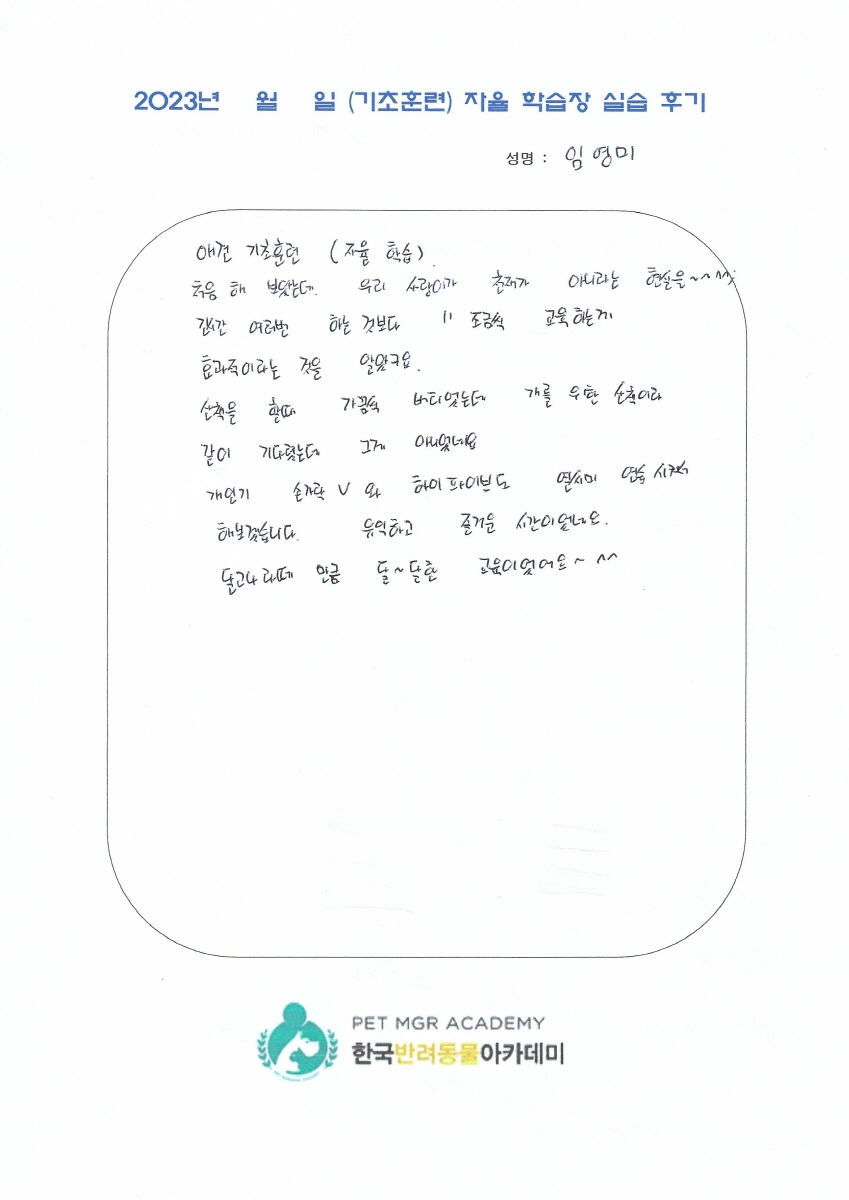 2023년 월 일 (기초훈련) 자율 학습장 실습 후기
성명 : 임영미
애견 기초훈련 (자율 학습).
처음 해 보았는데. 우리 사랑이가 천재가 아니라는 현실을~^^;
긴시간 여러번 하는 것보다 〃 조금씩 교육하는게
효과적이라는 것을 알았구요.
산책을 할때 가끔씩 버티었는데 개를 위한 산책이라
같이 기다렸는데 그게 아니었네요
개인기 손가락 V 와 하이파이브도 열시미 연습 시켜서
해보겠습니다. 유익하고 즐거운 시간이었네요.
달고나 라떼 만큼 달~달한 교육이었어요~ ^^
PET MGR ACADEMY
한국반려동물아카데미